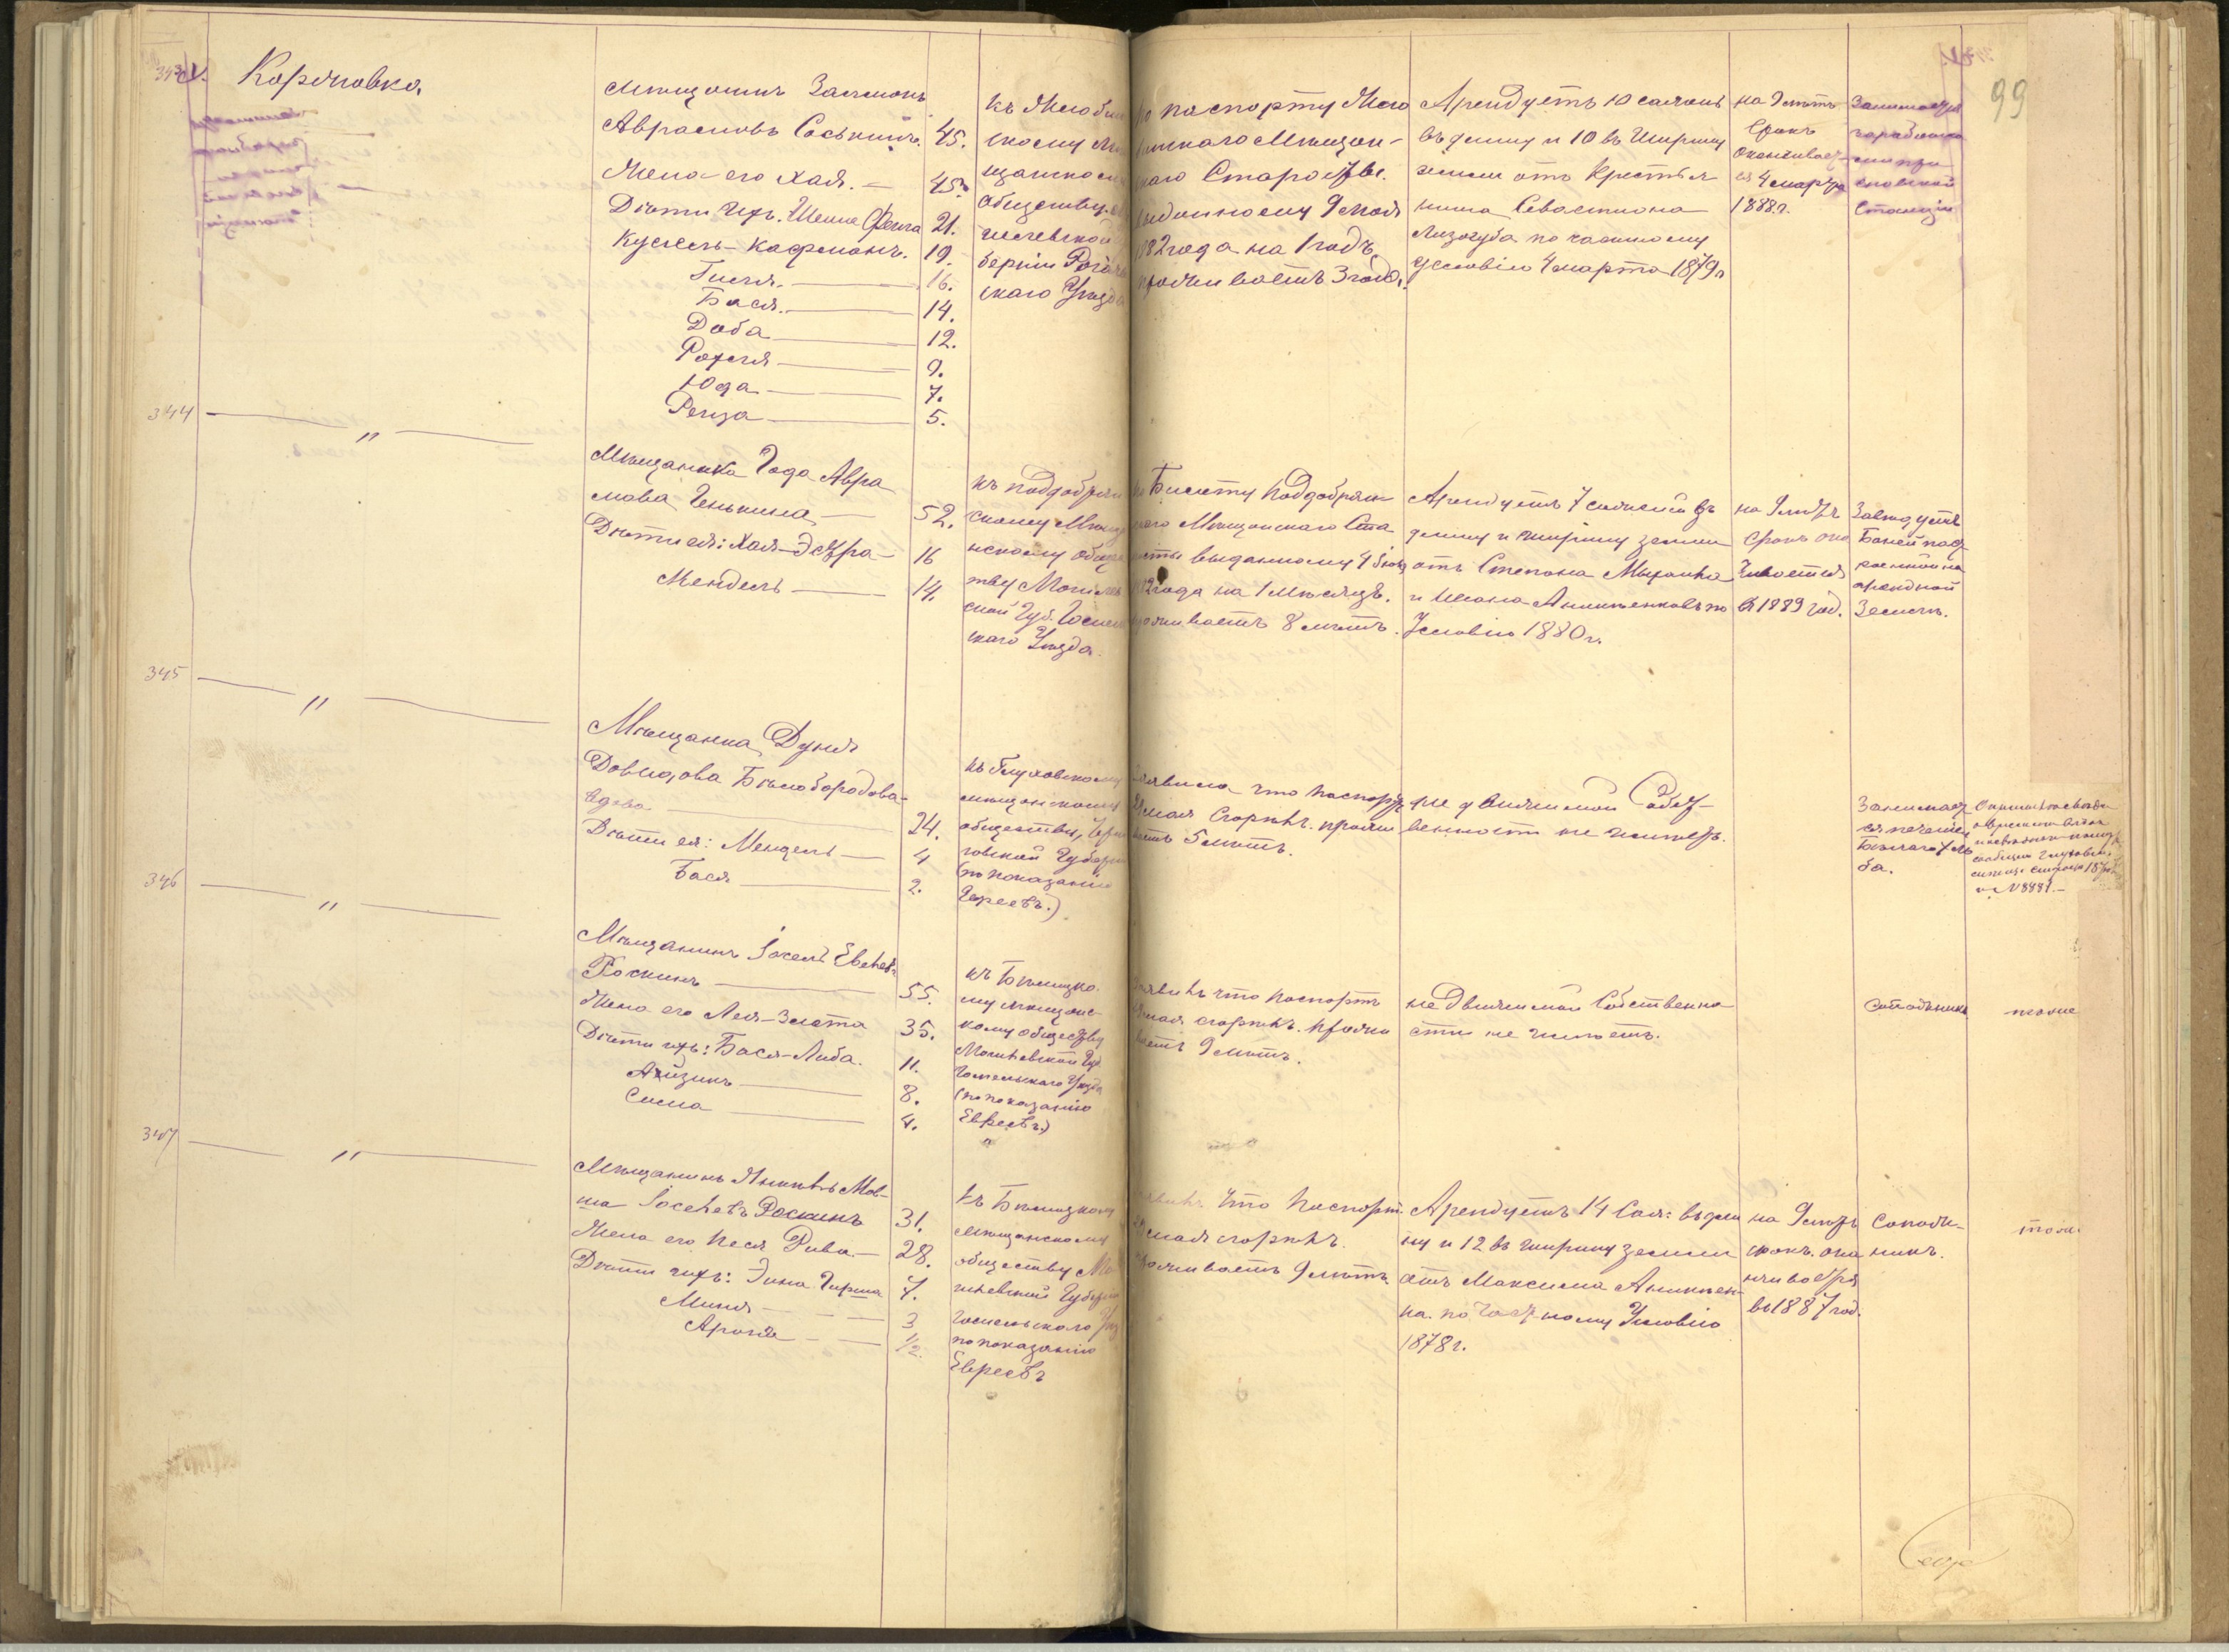 343
Корюковка
Мѣщанинъ Залманъ
Абрамовъ Соськинъ. 45.
Жена его Хая. — 45.
Дѣти ихъ. Шейна Фейга 21.
Кусель-Кафманъ. 19.
Гиля. 16.
Бася. 14.
Доба 12.
Рохля 9.
Юда 7.
Рейза 5.
къ Жлобин
скому Мѣ
щанскому
обществу
гилевской
берніи Рогач
скаго Уѣзда
по паспорту Жло
бинскаго Мѣщан-
скаго Старосты.
выданному 9 Мая
1882 года на 1 годъ
проживаетъ 3 года.
Арендуетъ 10 сажень
въ длину и 10 въ Ширину
земли отъ Крестья
нина Севастиона
Лизогуба по частному
условію 4 марта 1879 г
на 9 лѣтъ
Срокъ
Оканчивает-
ся 4 марта
1888 г.
Занимается
заработка
ми при
Станціи
99
344 — " —
Мѣщанка Года Абра
мова Генькина — 52.
Дѣти ея: Хая-Эсѳра — 16
Мендель — 14.
къ Поддобрян
скому Мѣща
нскому общес
тву Могилев
ской Губ. Гомел
скаго Уѣзда.
по Билету Поддобрян
скаго Мѣщанскаго Ста
росты выданному 4
1882 года на 1 мѣсяцъ.
проживаетъ 8 лѣтъ.
Арендуетъ 7 сажней въ
длину и ширину земли
отъ Степана Михалка
и Ивана Аникѣенковъ по
Условію 1880 г.
на 9 лѣтъ
Срокъ око
нчивается
въ 1889 год.
Заведуетъ
Баней пост
роенной на
арендной
Землѣ.
345 — " —
Мѣщанка Дуня
Довидова Бѣлобородова-
вдова 24.
Дѣти ея: Мендель — 4
Бася 2.
къ Глуховскому
мѣщанскому
обществу, Черни
говской Губерни
(по показанію
Евреевъ.)
Заявила что паспортъ
мая Сгорѣлъ. прожи
ваетъ 5 лѣтъ.
не движимой Собст
венности не имѣетъ.
Занимает
ся печеніе
Бѣлаго хлѣ
ба.
№ 8881.—
346 — " —
Мѣщанинъ Іосель Евелев
Роскинъ 55.
Жена его Лея-Злата 35.
Дѣти ихъ: Бася-Либа. 11.
Айзикъ 8.
Сима 4.
къ Бѣлицко
му мѣщанс-
кому обществу
Могилевской Губ
Гомельскаго Уѣзда
(по показанію
Евреевъ)
Заявилъ что паспортъ
мая сгорѣлъ. прожи
ваетъ 9 лѣтъ.
не движимой Собственно
сти не имѣетъ.
Сапожникъ
тоже
347 — " —
Мѣщанинъ Янкель Мов-
ша Іоселевъ Роскинъ 31.
Жена его Песя Рива. — 28.
Дѣти ихъ: Эина Гирша 7.
Миня 3
Аронъ 1/2
къ Бѣлицкому
мѣщанскому
обществу Мо
гилевской Губерни
Гомельскаго Уѣз
по показанію
Евреевъ
Заявилъ что паспорт.
29 мая сгорѣлъ.
проживаетъ 9 лѣтъ
Арендуетъ 14 Саж: въ дли
ну и 12 въ ширину земли
отъ Максима Аникѣен-
ка. по Частному Условію
1878 г.
на 9 лѣтъ
срокъ. ока
нчивается
въ 1887 год.
Сапож-
никъ.
тоже